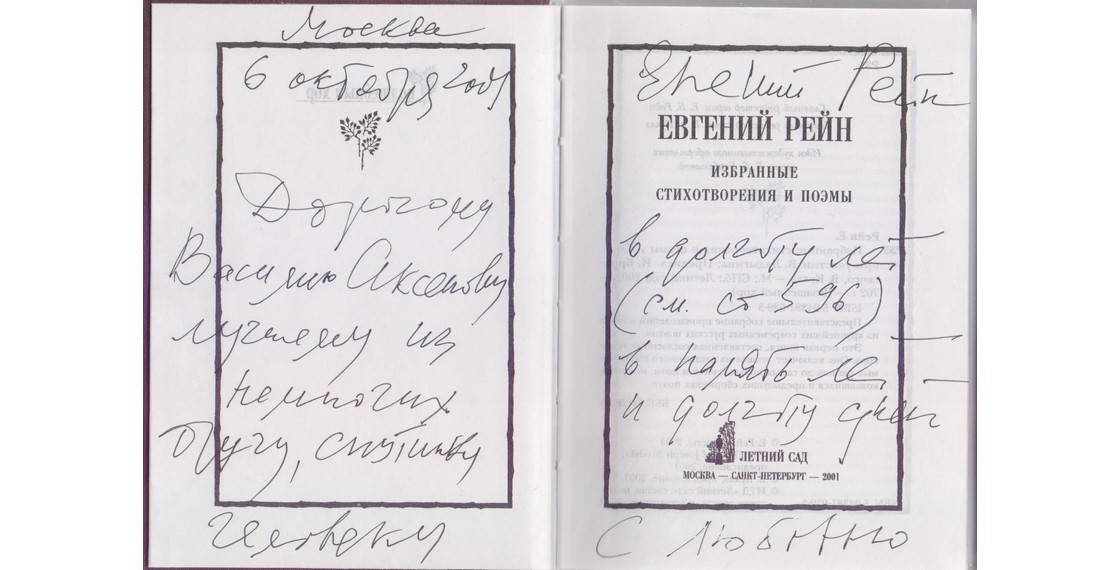 Москва
6 октября 2001
Дорогому
Василию Аксенову
лучшему из
немногих
другу, спутнику
человеку
Евгений Рейн
ЕВГЕНИЙ РЕЙН
ИЗБРАННЫЕ
СТИХОТВОРЕНИЯ И ПОЭМЫ
в долготу лет
(см. ст 596)
в память лет
и долготу дней
ЛЕТНИЙ САД
МОСКВА — САНКТ-ПЕТЕРБУРГ — 2001
С любовью